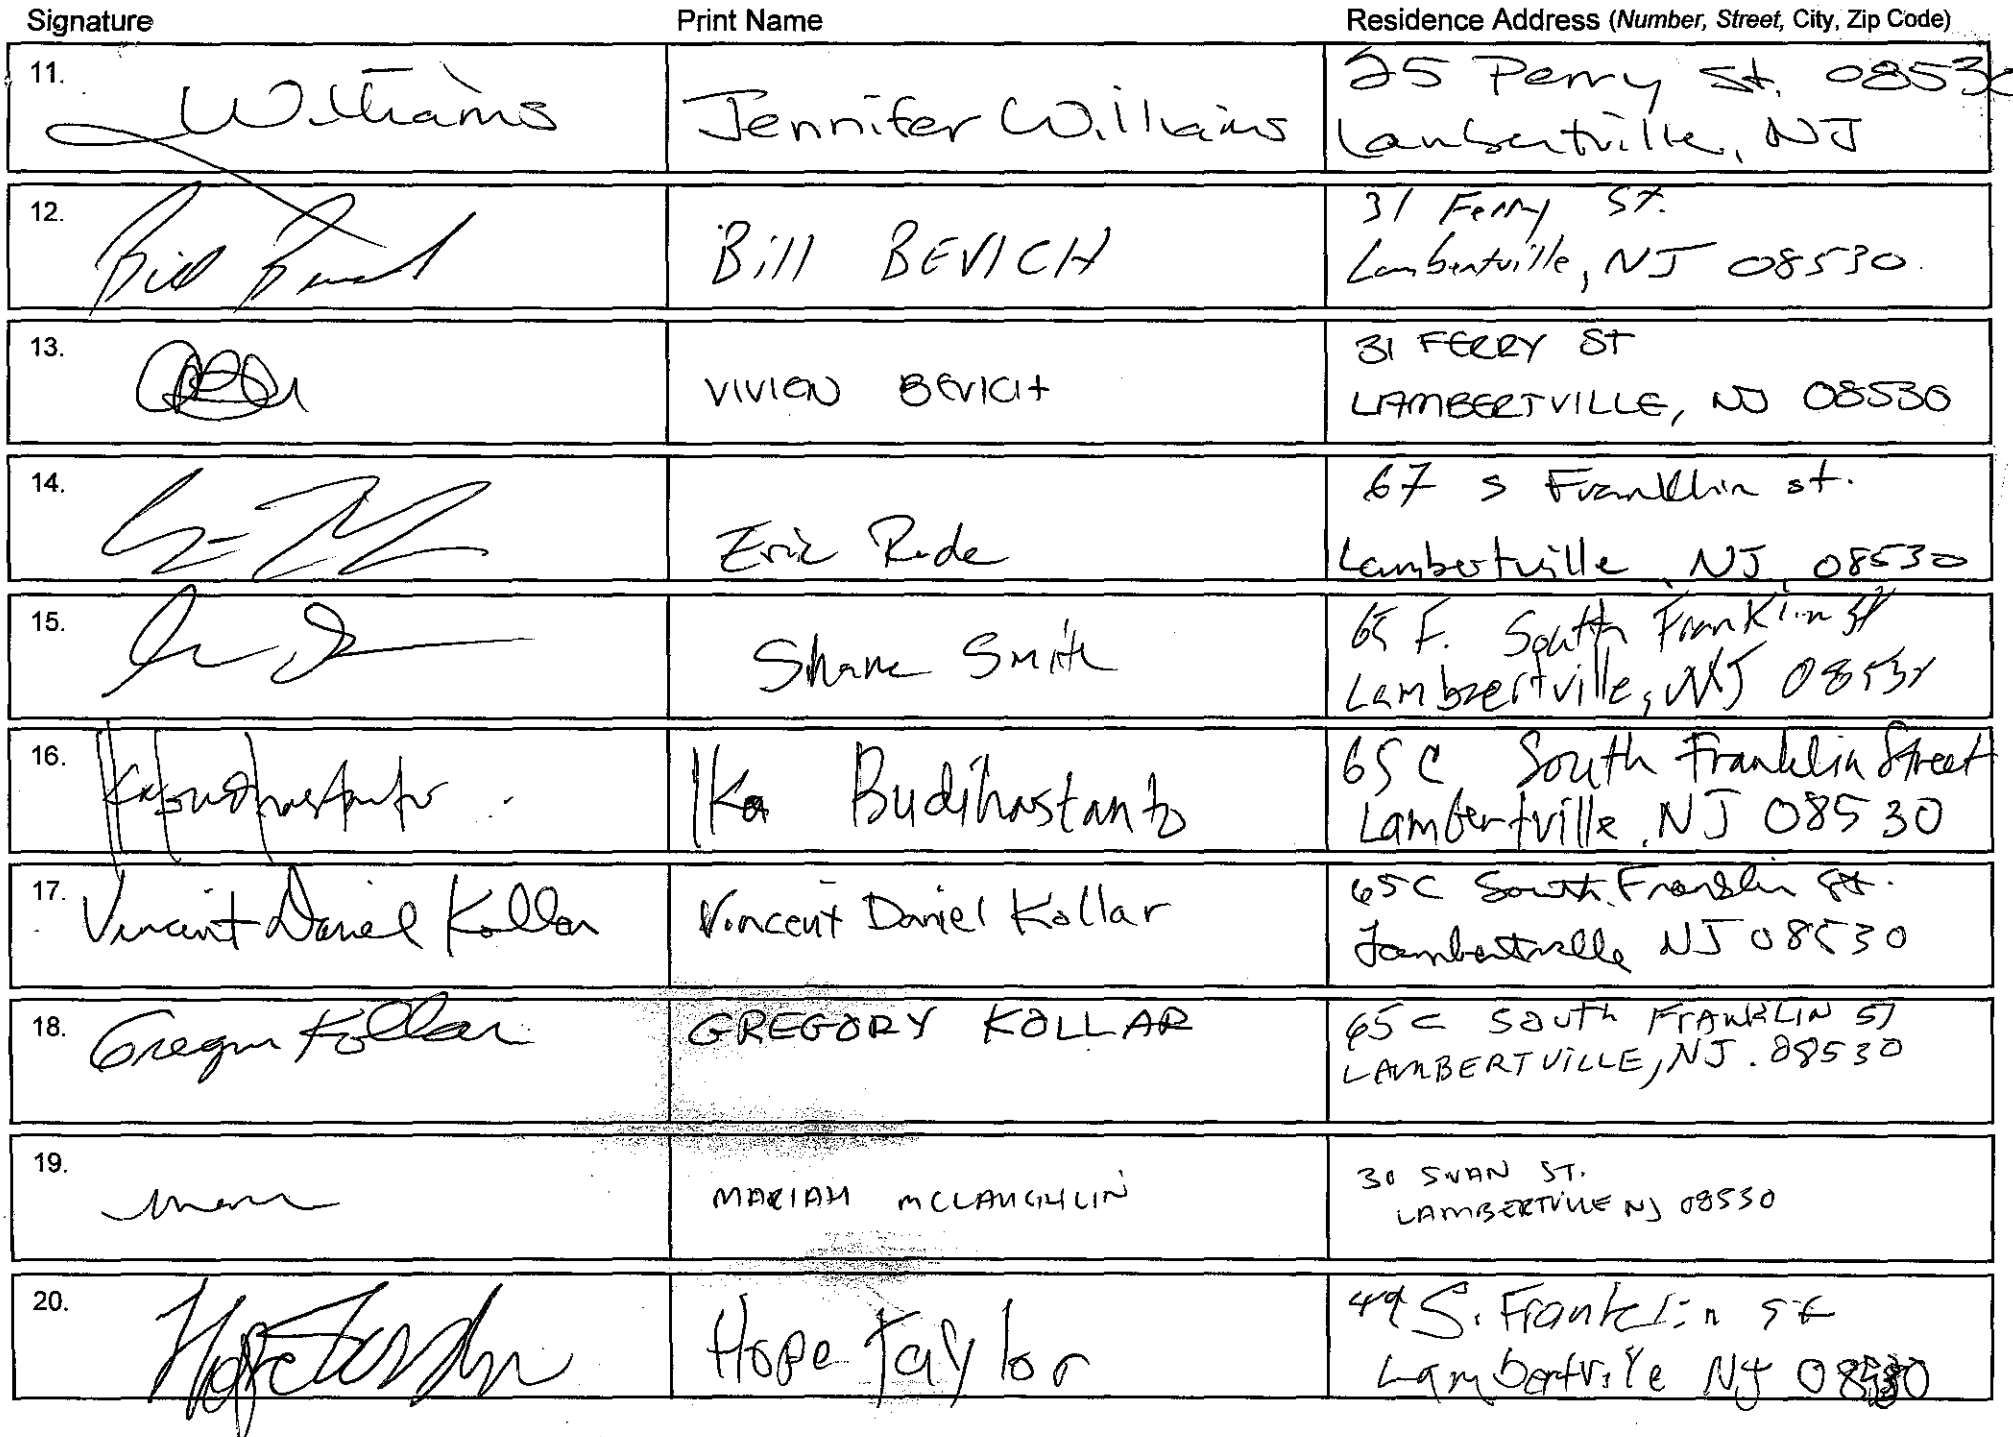 Signature Print Name Residence Address (Number, Street, City, Zip Code)
11. Williams Jennifer Williams 25 Perry St. 0853
Lambertville, NJ
12. Bill Bevich Bill BEVICH 31 Ferry St.
Lambertville, NJ 08530
13. VIVIEN BEVICH 31 FERRY ST
LAMBERTVILLE, NJ 08530
14. Eric Rude 67 S Franklin st.
Lambertville, NJ, 08530
15. Shane Smith 65 F. South Franklin St
Lambertville, NJ
16. Ika Budihastanto 65 C South Franklin Street
Lambertville, NJ 08530
17. Vincent Daniel Kollar Vincent Daniel Kollar 65C South Franklin St.
Lambertville NJ 08530
18. Gregory Kollar GREGORY KOLLAR 65 C South FRANKLIN ST
LAMBERTVILLE, NJ. 08530
19. MARIAH MCLAUGHLIN 30 SWAN ST.
LAMBERTVILLE NJ 08530
20. Hope Taylor Hope Taylor S. Franklin St
Lambertville NJ 08530